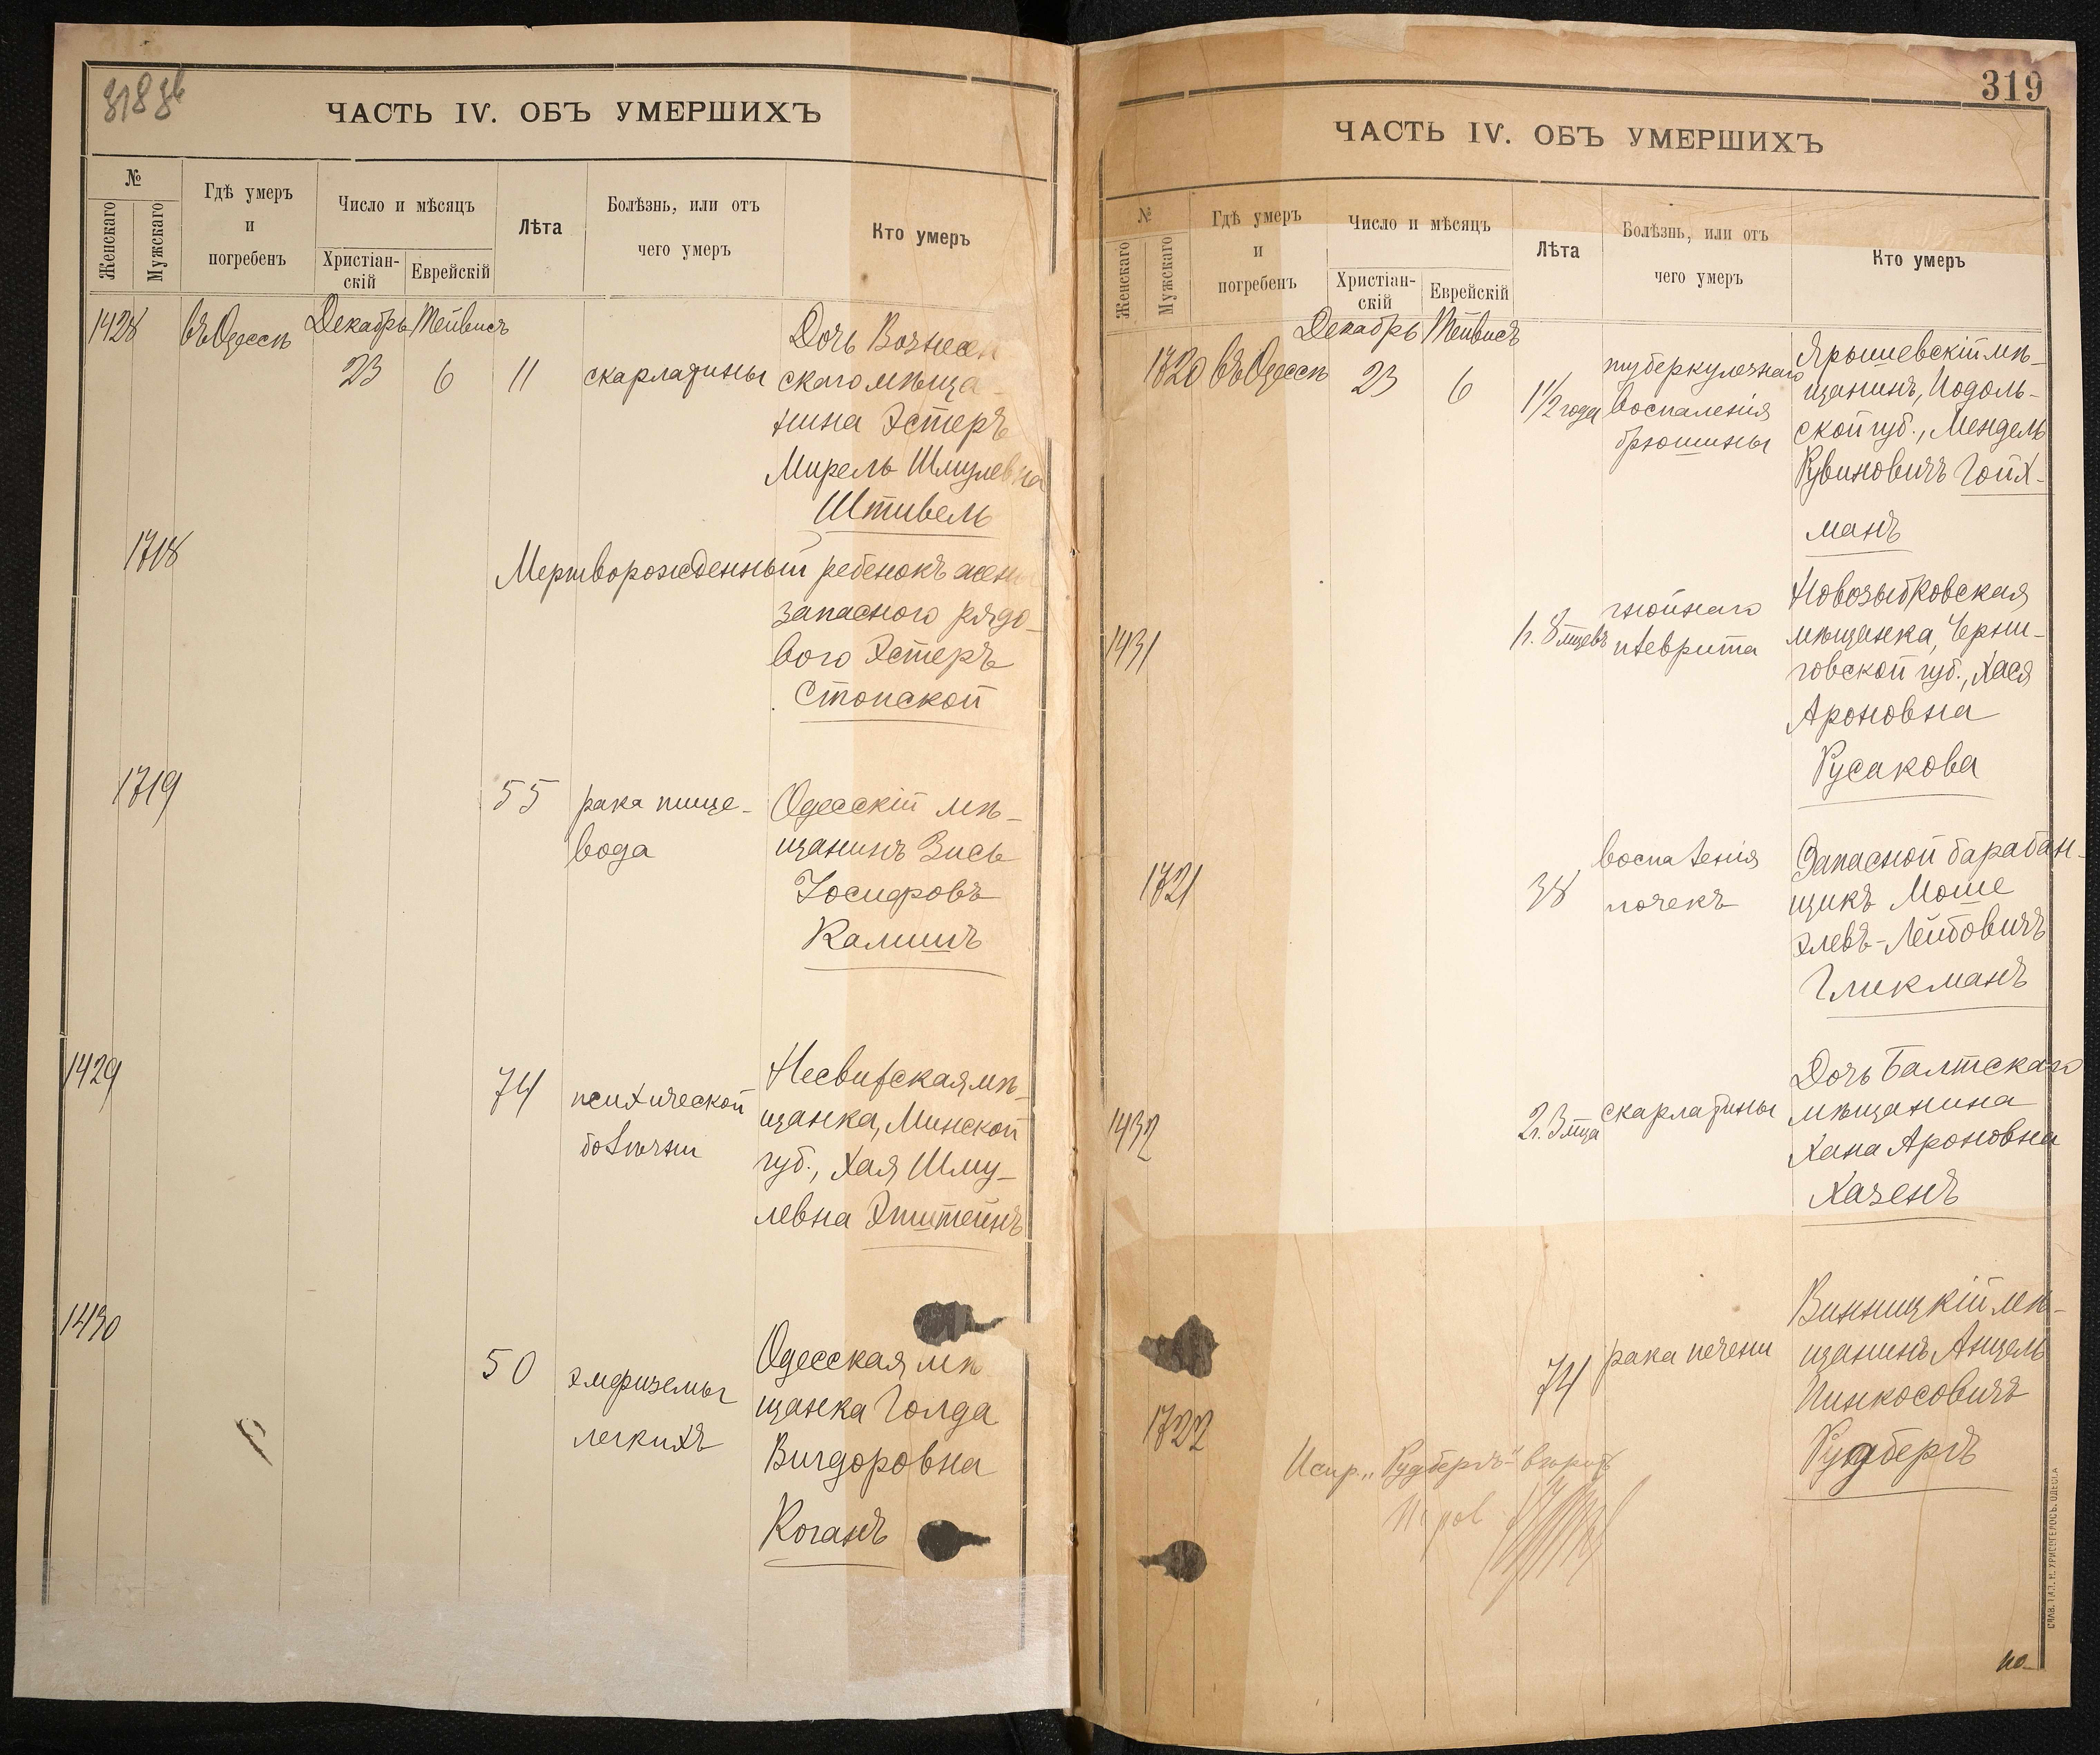 318 зв
ЧАСТЬ IV. ОБЪ УМЕРШИХЪ
№
Женскаго
Мужскаго
Гдѣ умеръ
и
погребенъ
Число и мѣсяцъ
Христіан-
скій
Еврейскій
Лѣта
Болѣзнь, или отъ
чего умеръ
Кто умеръ
1428 въ Одессѣ Декабрь Тейвисъ
23 6 11 скарлатины
Дочь Вознесен
скаго мѣща-
нина Эстеръ
Мирель Шмулевна
Штивель
1718
Мертворожденный ребенокъ жены
запаснаго рядо-
вого Эстеръ
Стопской
1719
55 рака пище-
вода
Одесскій мѣ-
щанинъ Зись
Іосифовъ
Калишъ
1429
74 психической
болѣзни
Несвижская мѣ-
щанка, Минской
губ., Хая Шму-
левна Эпштейнъ
1430
50 эмфиземы
легкихъ
Одесская мѣ
щанка Голда
Вигдоровна
Коганъ
319
ЧАСТЬ IV. ОБЪ УМЕРШИХЪ
№
Женскаго
Мужскаго
Гдѣ умеръ
и
погребенъ
Число и мѣсяцъ
Христіан-
скій
Еврейскій
Лѣта
Болѣзнь, или отъ
чего умеръ
Кто умеръ
1720 въ Одессѣ Декабрь Тейвисъ
23 6 1½ года
туберкулезнаго
воспаленія
брюшины
Ярышевскій мѣ-
щанинъ, Подоль-
ской губ., Мендель
Рувиновичъ Гойх-
манъ
1431
1 г. 8 мцевъ
гнойнаго
плеврита
Новозыбковская
мѣщанка, Черни-
говской губ., Хася
Ароновна
Русакова
1721
38
воспаленія
почекъ
Запасной барабан-
щикъ Моше
Элевъ-Лейбовичъ
Гликманъ
1432
2 г. 3 мца
скарлатины
Дочь Балтскаго
мѣщанина
Хана Ароновна
Хазенъ
1722
74
рака печени
Винницкій мѣ-
щанинъ Анцель
Пинкосовичъ
Рудбергъ
Испр. „Рудбергъ“ вѣрно
по-